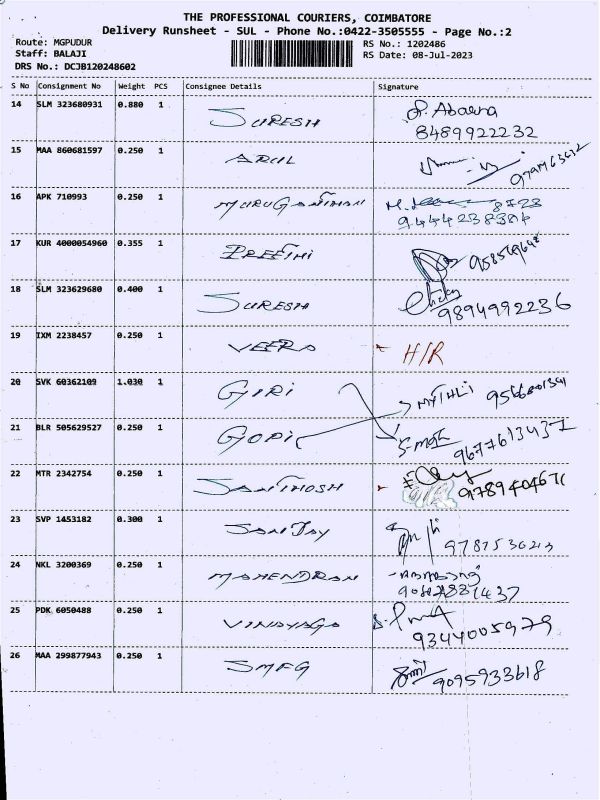 THE PROFESSIONAL COURIERS, COIMBATORE
Delivery Runsheet - SUL - Phone No.:0422-3505555 - Page No.:2
Route: MGPUDUR
Staff: BALAJI
DRS No.: DCJB120248602
RS No.: 1202486
RS Date: 08-Jul-2023
S No Consignment No Weight PCS Consignee Details Signature
14 SLM 323680931 0.880 1 SURESH
8489922232
15 MAA 860681597 0.250 1 ARUL
16 APK 710993 0.250 1 MURUGANTHAN 8723
17 KUR 4000054960 0.355 1 PREETHI
18 SLM 323629680 0.400 1 SURESH
9894992236
19 IXM 2238457 0.250 1 VEERA H/R
20 SVK 60362109 1.030 1 GIRI
21 BLR 505629527 0.250 1 GOPI
9677613437
22 MTR 2342754 0.250 1 SANTHOSH
23 SVP 1453182 0.300 1 SANJAY
24 NKL 3200369 0.250 1 MAHENDRAN
25 PDK 6050488 0.250 1 VINAYAGA
9344005979
26 MAA 299877943 0.250 1 SMFG
9095933618